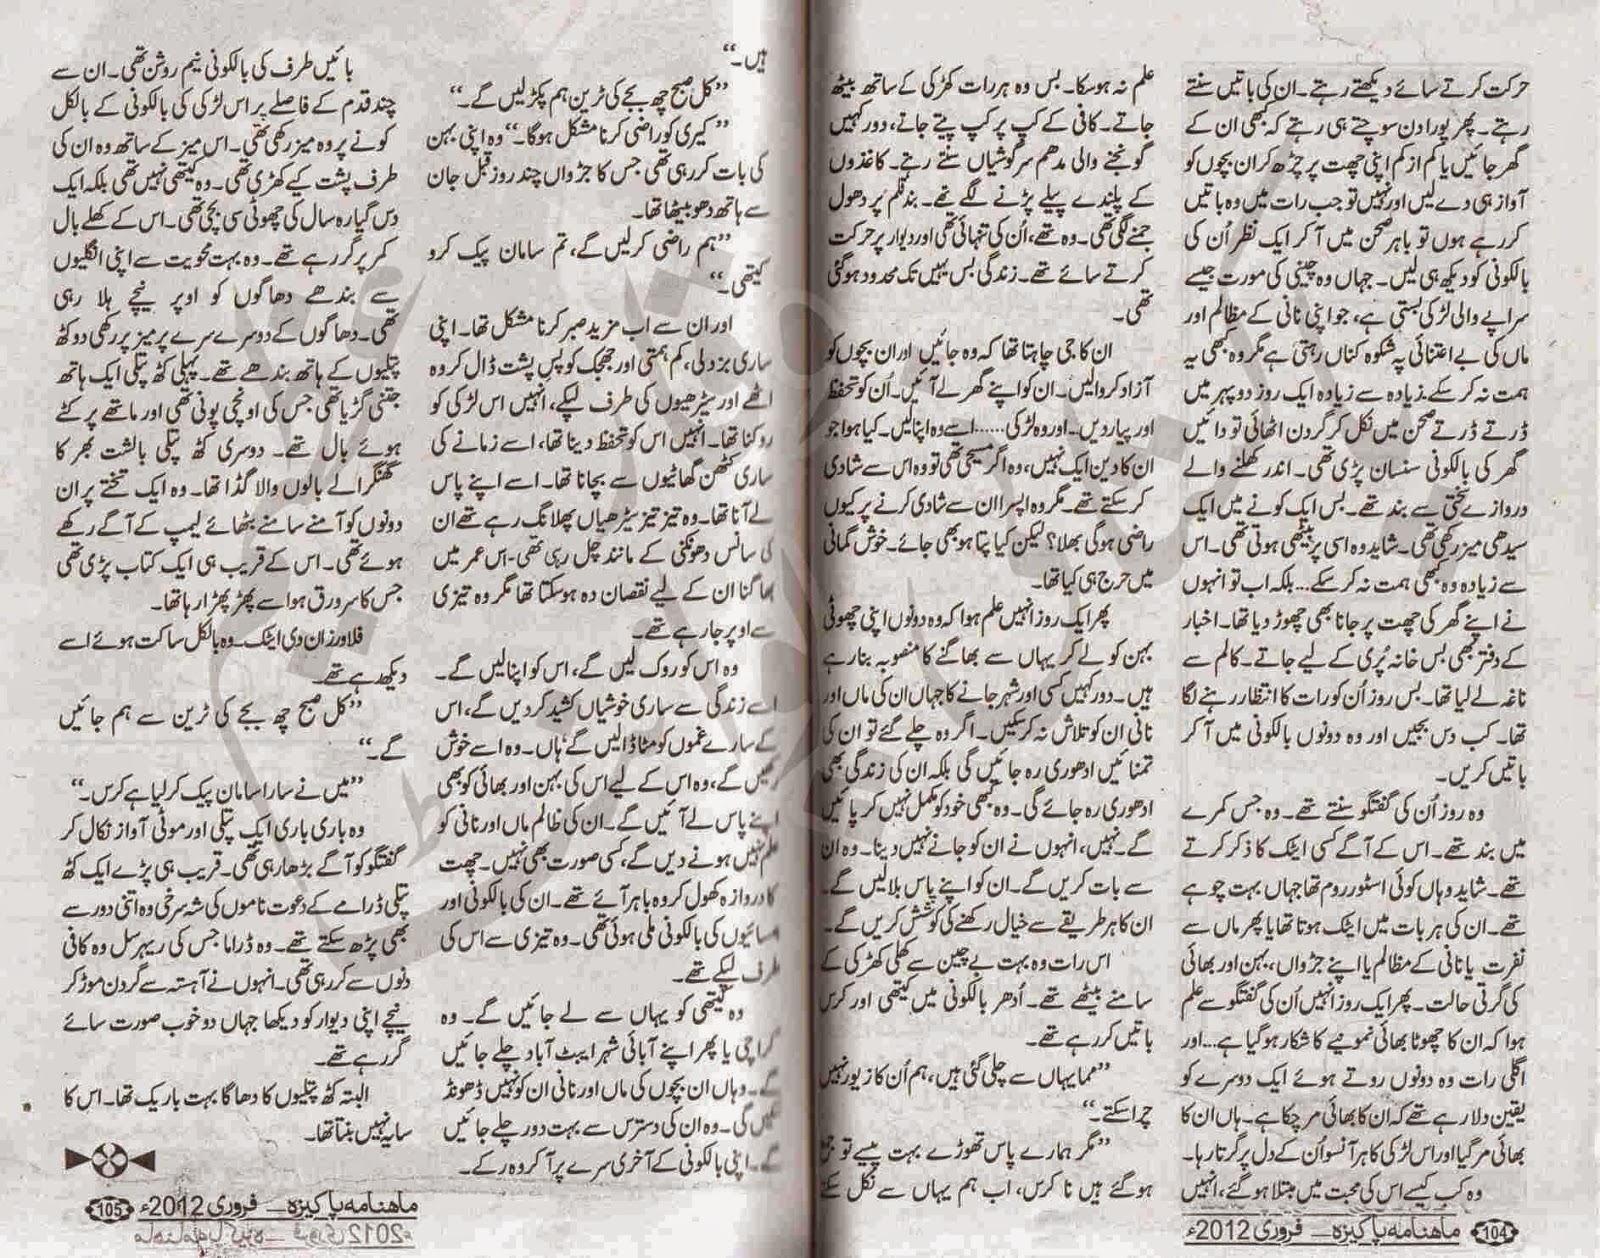 حرکت کرتے سائے دیکھتے رہتے۔ ان کی باتیں سنتے
رہتے۔ پھر پورا دن سوچتے ہی رہتے کہ کبھی ان کے
گھر جائیں یا کم از کم اپنی چھت پر چڑھ کر ان بچوں کو
آواز ہی دے لیں اور نہیں تو جب رات میں وہ باتیں
کر رہے ہوں تو باہر صحن میں آ کر ایک نظر اُن کی
بالکونی کو دیکھ ہی لیں۔ جہاں وہ چینی کی مورت جیسے
سراپے والی لڑکی بستی ہے، جو اپنی نانی کے مظالم اور
ماں کی بے اعتنائی پہ شکوہ کناں رہتی ہے مگر وہ کبھی یہ
ہمت نہ کر سکے۔ زیادہ سے زیادہ ایک روز دوپہر میں
ڈرتے ڈرتے صحن میں نکل کر گردن اٹھائی تو دائیں
گھر کی بالکونی سنسان پڑی تھی۔ اندر کھلنے والے
دروازے سختی سے بند تھے۔ بس ایک کونے میں ایک
سیدھی میز رکھی تھی۔ شاید وہ اسی پر بیٹھی ہوتی تھی۔ اس
سے زیادہ وہ کبھی ہمت نہ کر سکے... بلکہ اب تو انہوں
نے اپنے گھر کی چھت پر جانا بھی چھوڑ دیا تھا۔ اخبار
کے دفتر بھی بس خانہ پُری کے لیے جاتے۔ کالم سے
ناغہ لے لیا تھا۔ بس روز اُن کو رات کا انتظار رہنے لگا
تھا۔ کب دس بجیں اور وہ دونوں بالکونی میں آ کر
باتیں کریں۔
وہ روز اُن کی گفتگو سنتے تھے۔ وہ جس کمرے
میں بند تھے۔ اس کے آگے کسی اٹیک کا ذکر کرتے
تھے۔ شاید وہاں کوئی اسٹور روم تھا جہاں بہت چوہے
تھے۔ ان کی ہر بات میں اٹیک ہوتا تھا یا پھر ماں سے
نفرت یا نانی کے مظالم یا اپنے جڑواں، بہن اور بھائی
کی گرتی حالت۔ پھر ایک روز انہیں اُن کی گفتگو سے علم
ہوا کہ ان کا چھوٹا بھائی نمونیے کا شکار ہو گیا ہے... اور
اگلی رات وہ دونوں روتے ہوئے ایک دوسرے کو
یقین دلا رہے تھے کہ ان کا بھائی مر چکا ہے۔ ہاں ان کا
بھائی مر گیا اور اس لڑکی کا ہر آنسو اُن کے دل پر گرتا رہا۔
وہ کب کیسے اس کی محبت میں مبتلا ہو گئے، انہیں
104 ماہنامہ پاکیزہ — فروری 2012ء
علم نہ ہو سکا۔ بس وہ ہر رات کھڑکی کے ساتھ بیٹھ
جاتے۔ کافی کے کپ پر کپ پیتے جاتے، دور کہیں
گونجنے والی مدھم سرگوشیاں سنتے رہتے۔ کاغذوں
کے پلندے پیلے پڑنے لگے تھے۔ بند قلم پر دھول
جمنے لگی تھی۔ وہ تھے، اُن کی تنہائی تھی اور دیوار پر حرکت
کرتے سائے تھے۔ زندگی بس یہیں تک محدود ہو گئی
تھی۔
ان کا جی چاہتا تھا کہ وہ جائیں اور ان بچوں کو
آزاد کروا لیں۔ ان کو اپنے گھر لے آئیں۔ اُن کو تحفظ
اور پیار دیں۔ اور وہ لڑکی...... اسے وہ اپنا لیں۔ کیا ہوا جو
ان کا دین ایک نہیں، وہ اگر مسیحی تھی تو وہ اس سے شادی
کر سکتے تھے۔ مگر وہ اپسرا ان سے شادی کرنے پر کیوں
راضی ہو گی بھلا؟ لیکن کیا پتا ہو بھی جائے۔ خوش گمانی
میں حرج ہی کیا تھا۔
پھر ایک روز انہیں علم ہوا کہ وہ دونوں اپنی چھوٹی
بہن کو لے کر یہاں سے بھاگنے کا منصوبہ بنا رہے
ہیں۔ دور کہیں کسی اور شہر جانے کا جہاں ان کی ماں اور
نانی ان کو تلاش نہ کر سکیں۔ اگر وہ چلے گئے تو ان کی
تمنائیں ادھوری رہ جائیں گی بلکہ ان کی زندگی بھی
ادھوری رہ جائے گی۔ وہ کبھی خود کو مکمل نہیں کر پائیں
گے۔ نہیں، انہوں نے ان کو جانے نہیں دینا۔ وہ ان
سے بات کریں گے۔ ان کو اپنے پاس بلا لیں گے۔
ان کا ہر طریقے سے خیال رکھنے کی کوشش کریں گے۔
اس رات وہ بہت بے چین سے کھلی کھڑکی کے
سامنے بیٹھے تھے۔ اُدھر بالکونی میں کیتھی اور کرس
باتیں کر رہے تھے۔
”مما یہاں سے چلی گئی ہیں، ہم اُن کا زیور نہیں
چرا سکتے۔“
”مگر ہمارے پاس تھوڑے بہت پیسے تو جمع
ہو گئے ہیں نا کرس، اب ہم یہاں سے نکل سکتے
ہیں۔“
”کل صبح چھ بجے کی ٹرین ہم پکڑ لیں گے۔“
”کیری کو راضی کرنا مشکل ہو گا۔“ وہ اپنی بہن
کی بات کر رہی تھی جس کا جڑواں چند روز قبل جان
سے ہاتھ دھو بیٹھا تھا۔
”ہم راضی کر لیں گے، تم سامان پیک کرو
کیتھی۔“
اور ان سے اب مزید صبر کرنا مشکل تھا۔ اپنی
ساری بزدلی، کم ہمتی اور جھجک کو پسِ پشت ڈال کر وہ
اٹھے اور سیڑھیوں کی طرف لپکے، انہیں اس لڑکی کو
روکنا تھا۔ انہیں اس کو تحفظ دینا تھا، اسے زمانے کی
ساری کٹھن گھاٹیوں سے بچانا تھا۔ اسے اپنے پاس
لے آنا تھا۔ وہ تیز تیز سیڑھیاں پھلانگ رہے تھے ان
کی سانس دھونکنی کے مانند چل رہی تھی۔ اس عمر میں
بھاگنا ان کے لیے نقصان دہ ہو سکتا تھا مگر وہ تیزی
سے اوپر جا رہے تھے۔
وہ اس کو روک لیں گے، اس کو اپنا لیں گے۔
اسے زندگی سے ساری خوشیاں کشید کر دیں گے، اس
کے سارے غموں کو مٹا ڈالیں گے ہاں۔ وہ اسے خوش
رکھیں گے، وہ اس کے لیے اس کی بہن اور بھائی کو بھی
اپنے پاس لے آئیں گے۔ ان کی ظالم ماں اور نانی کو
علم نہیں ہونے دیں گے، کسی صورت بھی نہیں۔ چھت
کا دروازہ کھول کر وہ باہر آئے تھے۔ ان کی بالکونی اور
ہمسائیوں کی بالکونی ملی ہوئی تھی۔ وہ تیزی سے اس کی
طرف لپکے تھے۔
وہ کیتھی کو یہاں سے لے جائیں گے۔ وہ
کراچی یا پھر اپنے آبائی شہر ایبٹ آباد چلے جائیں
گے۔ وہاں ان بچوں کی ماں اور نانی ان کو نہیں ڈھونڈ
سکیں گی۔ وہ ان کی دسترس سے بہت دور چلے جائیں
گے۔ اپنی بالکونی کے آخری سرے پر آ کر وہ رکے۔
بائیں طرف کی بالکونی نیم روشن تھی۔ ان سے
چند قدم کے فاصلے پر اس لڑکی کی بالکونی کے بالکل
کونے پر وہ میز رکھی تھی۔ اس میز کے ساتھ وہ ان کی
طرف پشت کیے کھڑی تھی۔ وہ کیتھی نہیں تھی بلکہ ایک
دس گیارہ سال کی چھوٹی سی بچی تھی۔ اس کے کھلے بال
کمر پر گر رہے تھے۔ وہ بہت محویت سے اپنی انگلیوں
سے بندھے دھاگوں کو اوپر نیچے ہلا رہی
تھی۔ دھاگوں کے دوسرے سرے پر میز پر رکھی دو کٹھ
پتلیوں کے ہاتھ بندھے تھے۔ پہلی کٹھ پتلی ایک ہاتھ
جتنی گڑیا تھی جس کی اونچی پونی تھی اور ماتھے پر کٹے
ہوئے بال تھے۔ دوسری کٹھ پتلی بالشت بھر کا
گھنگرالے بالوں والا گڈا تھا۔ وہ ایک تختے پر ان
دونوں کو آمنے سامنے بٹھائے لیمپ کے آگے رکھے
ہوئے تھی۔ اس کے قریب ہی ایک کتاب پڑی تھی
جس کا سرورق ہوا سے پھڑپھڑا رہا تھا۔
فلاورز ان دی اٹیک۔ وہ بالکل ساکت ہوئے اسے
دیکھ رہے تھے۔
”کل صبح چھ بجے کی ٹرین سے ہم جائیں
گے۔“
”میں نے سارا سامان پیک کر لیا ہے کرس۔“
وہ باری باری ایک پتلی اور موٹی آواز نکال کر
گفتگو کو آگے بڑھا رہی تھی۔ قریب ہی پڑے ایک کٹھ
پتلی ڈرامے کے دعوت ناموں کی شہ سرخی وہ اتنی دور سے
بھی پڑھ سکتے تھے۔ وہ ڈراما جس کی ریہرسل وہ کافی
دنوں سے کر رہی تھی۔ انہوں نے آہستہ سے گردن موڑ کر
نیچے اپنی دیوار کو دیکھا جہاں دو خوب صورت سائے
گر رہے تھے۔
البتہ کٹھ پتلیوں کا دھاگا بہت باریک تھا۔ اس کا
سایہ نہیں بنتا تھا۔
105 ماہنامہ پاکیزہ — فروری 2012ء